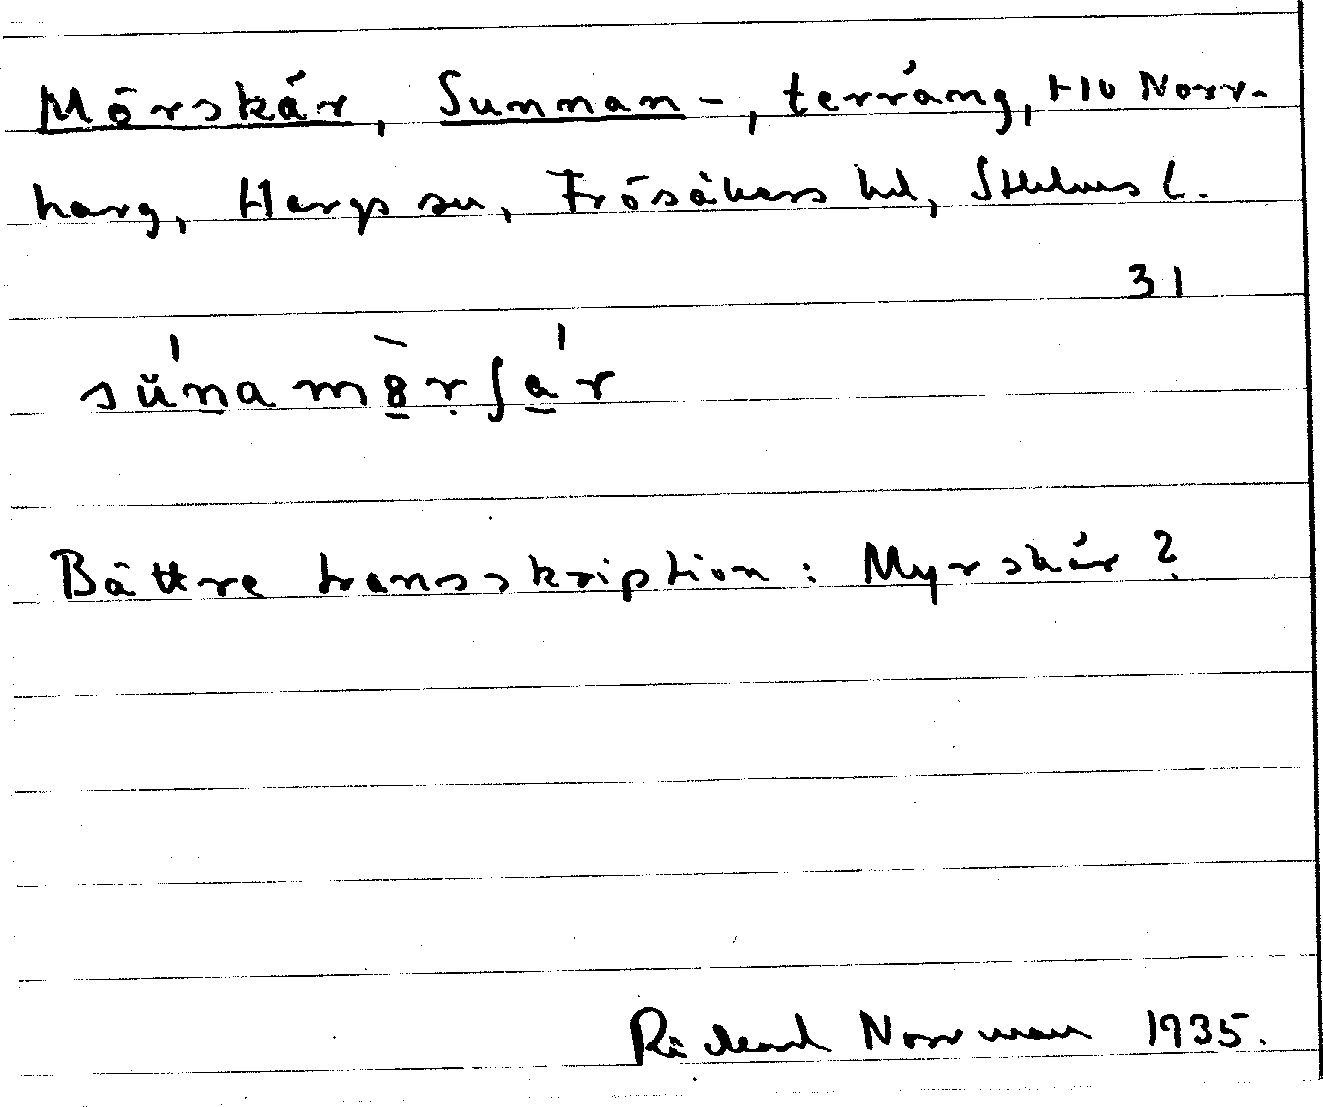 Mörskär, Sunnan-, terräng, Hv Norr-
harg, Hargs sn, Frösåkers hd, Sthlms l.
31
sŭ́na mȍ̱rʃá̱r
Bättre transskription: Myrskär?
Richard Norrman 1935.